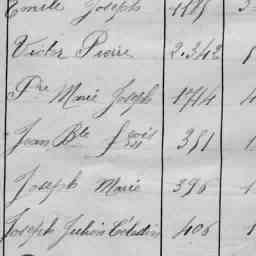 Emile Joseph
Victor Pierre 2.342
Pre Marie Joseph 1714
Jean Bte fçois 351
Joseph Marie 396
Joseph Julien Célestin 406